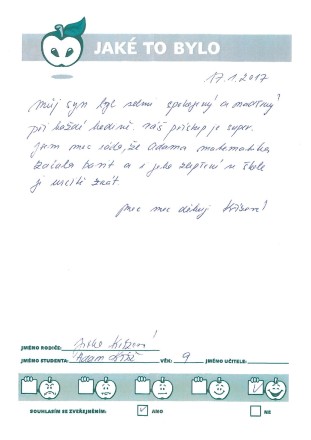 JAKÉ TO BYLO
17.1.2017
Můj syn byl velmi spokojený a nadšený
při každé hodině. Váš přístup je super.
Jsem moc ráda, že Adama matematika
začala bavit a i jeho zlepšení ve škole
je určitě znát.
moc moc děkuji Křížová
JMÉNO RODIČE: Jitka Křížová
JMÉNO STUDENTA: Adam Kříž VĚK: 9 JMÉNO UČITELE:
SOUHLASÍM SE ZVEŘEJNĚNÍM: ANO NE